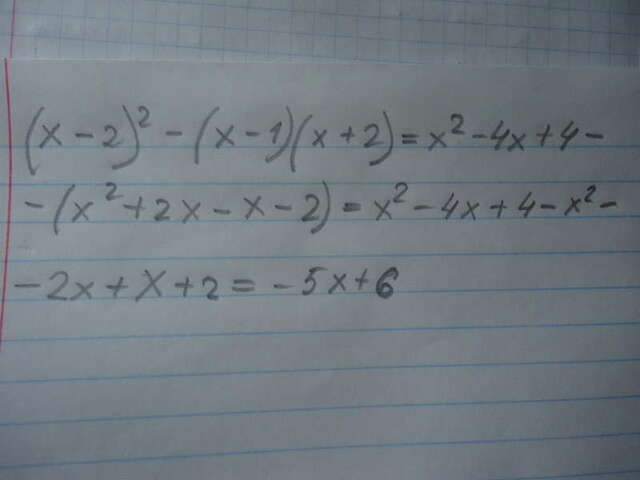 (x - 2)² - (x - 1)(x + 2) = x² - 4x + 4 -
- (x² + 2x - x - 2) = x² - 4x + 4 - x² -
- 2x + x + 2 = - 5x + 6